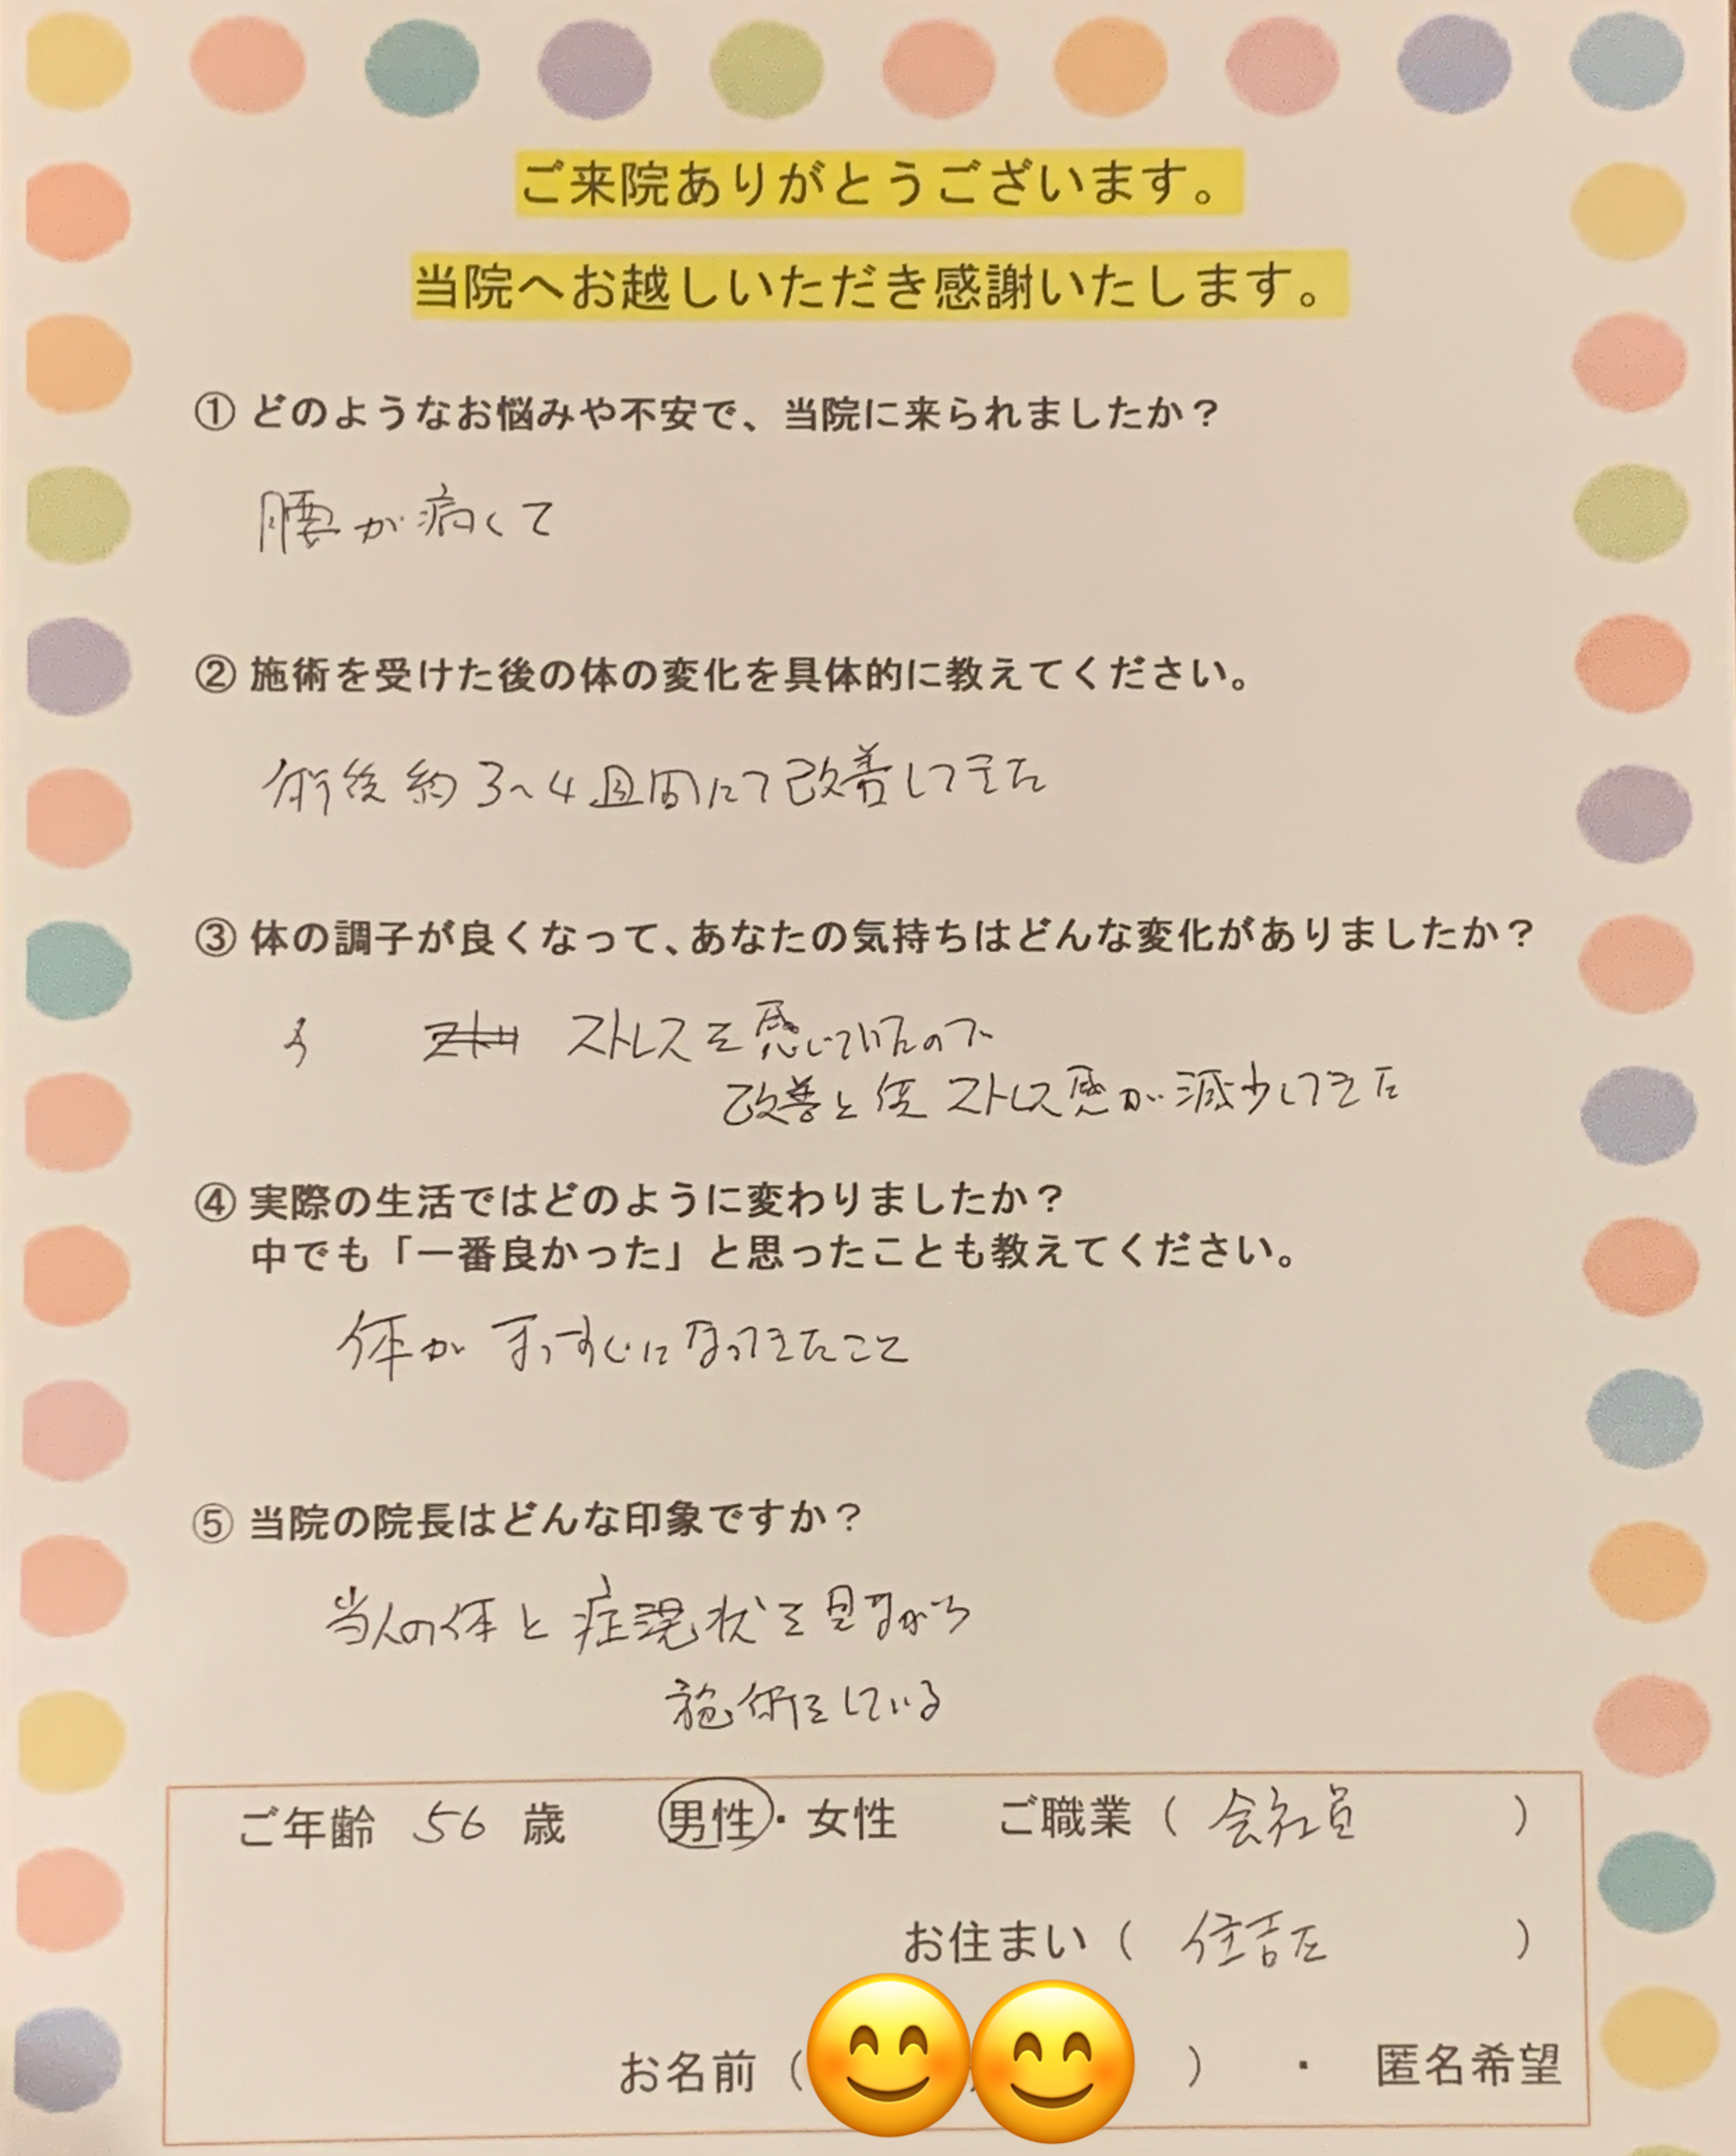 ご来院ありがとうございます。
当院へお越しいただき感謝いたします。
① どのようなお悩みや不安で、当院に来られましたか？
腰が痛くて
② 施術を受けた後の体の変化を具体的に教えてください。
術後約3～4週間にて改善してきた
③ 体の調子が良くなって、あなたの気持ちはどんな変化がありましたか？
ストレスを感じていたので
改善と伴 ストレス感が減少してきた
④ 実際の生活ではどのように変わりましたか？
中でも「一番良かった」と思ったことも教えてください。
体がまっすぐになってきたこと
⑤ 当院の院長はどんな印象ですか？
当人の体と症現状を見ながら
施術をしている
ご年齢 56 歳 男性・女性 ご職業（会社員）
お住まい（住吉区）
お名前（ ）・匿名希望